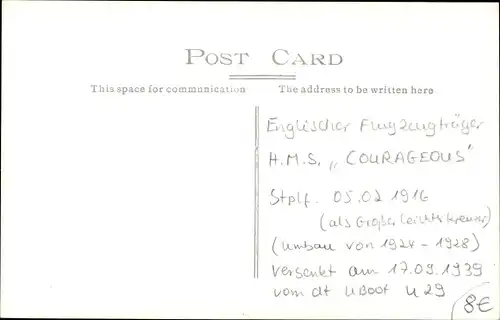 POST CARD
This space for communication
The address to be written here
Englischer Flugzeugträger
H.M.S. „COURAGEOUS"
Stplf. 05.02 1916
(als Großer Leichter Kreuzer)
(Umbau von 1924 - 1928)
versenkt am 17.09.1939
vom dt UBoot U 29
8€